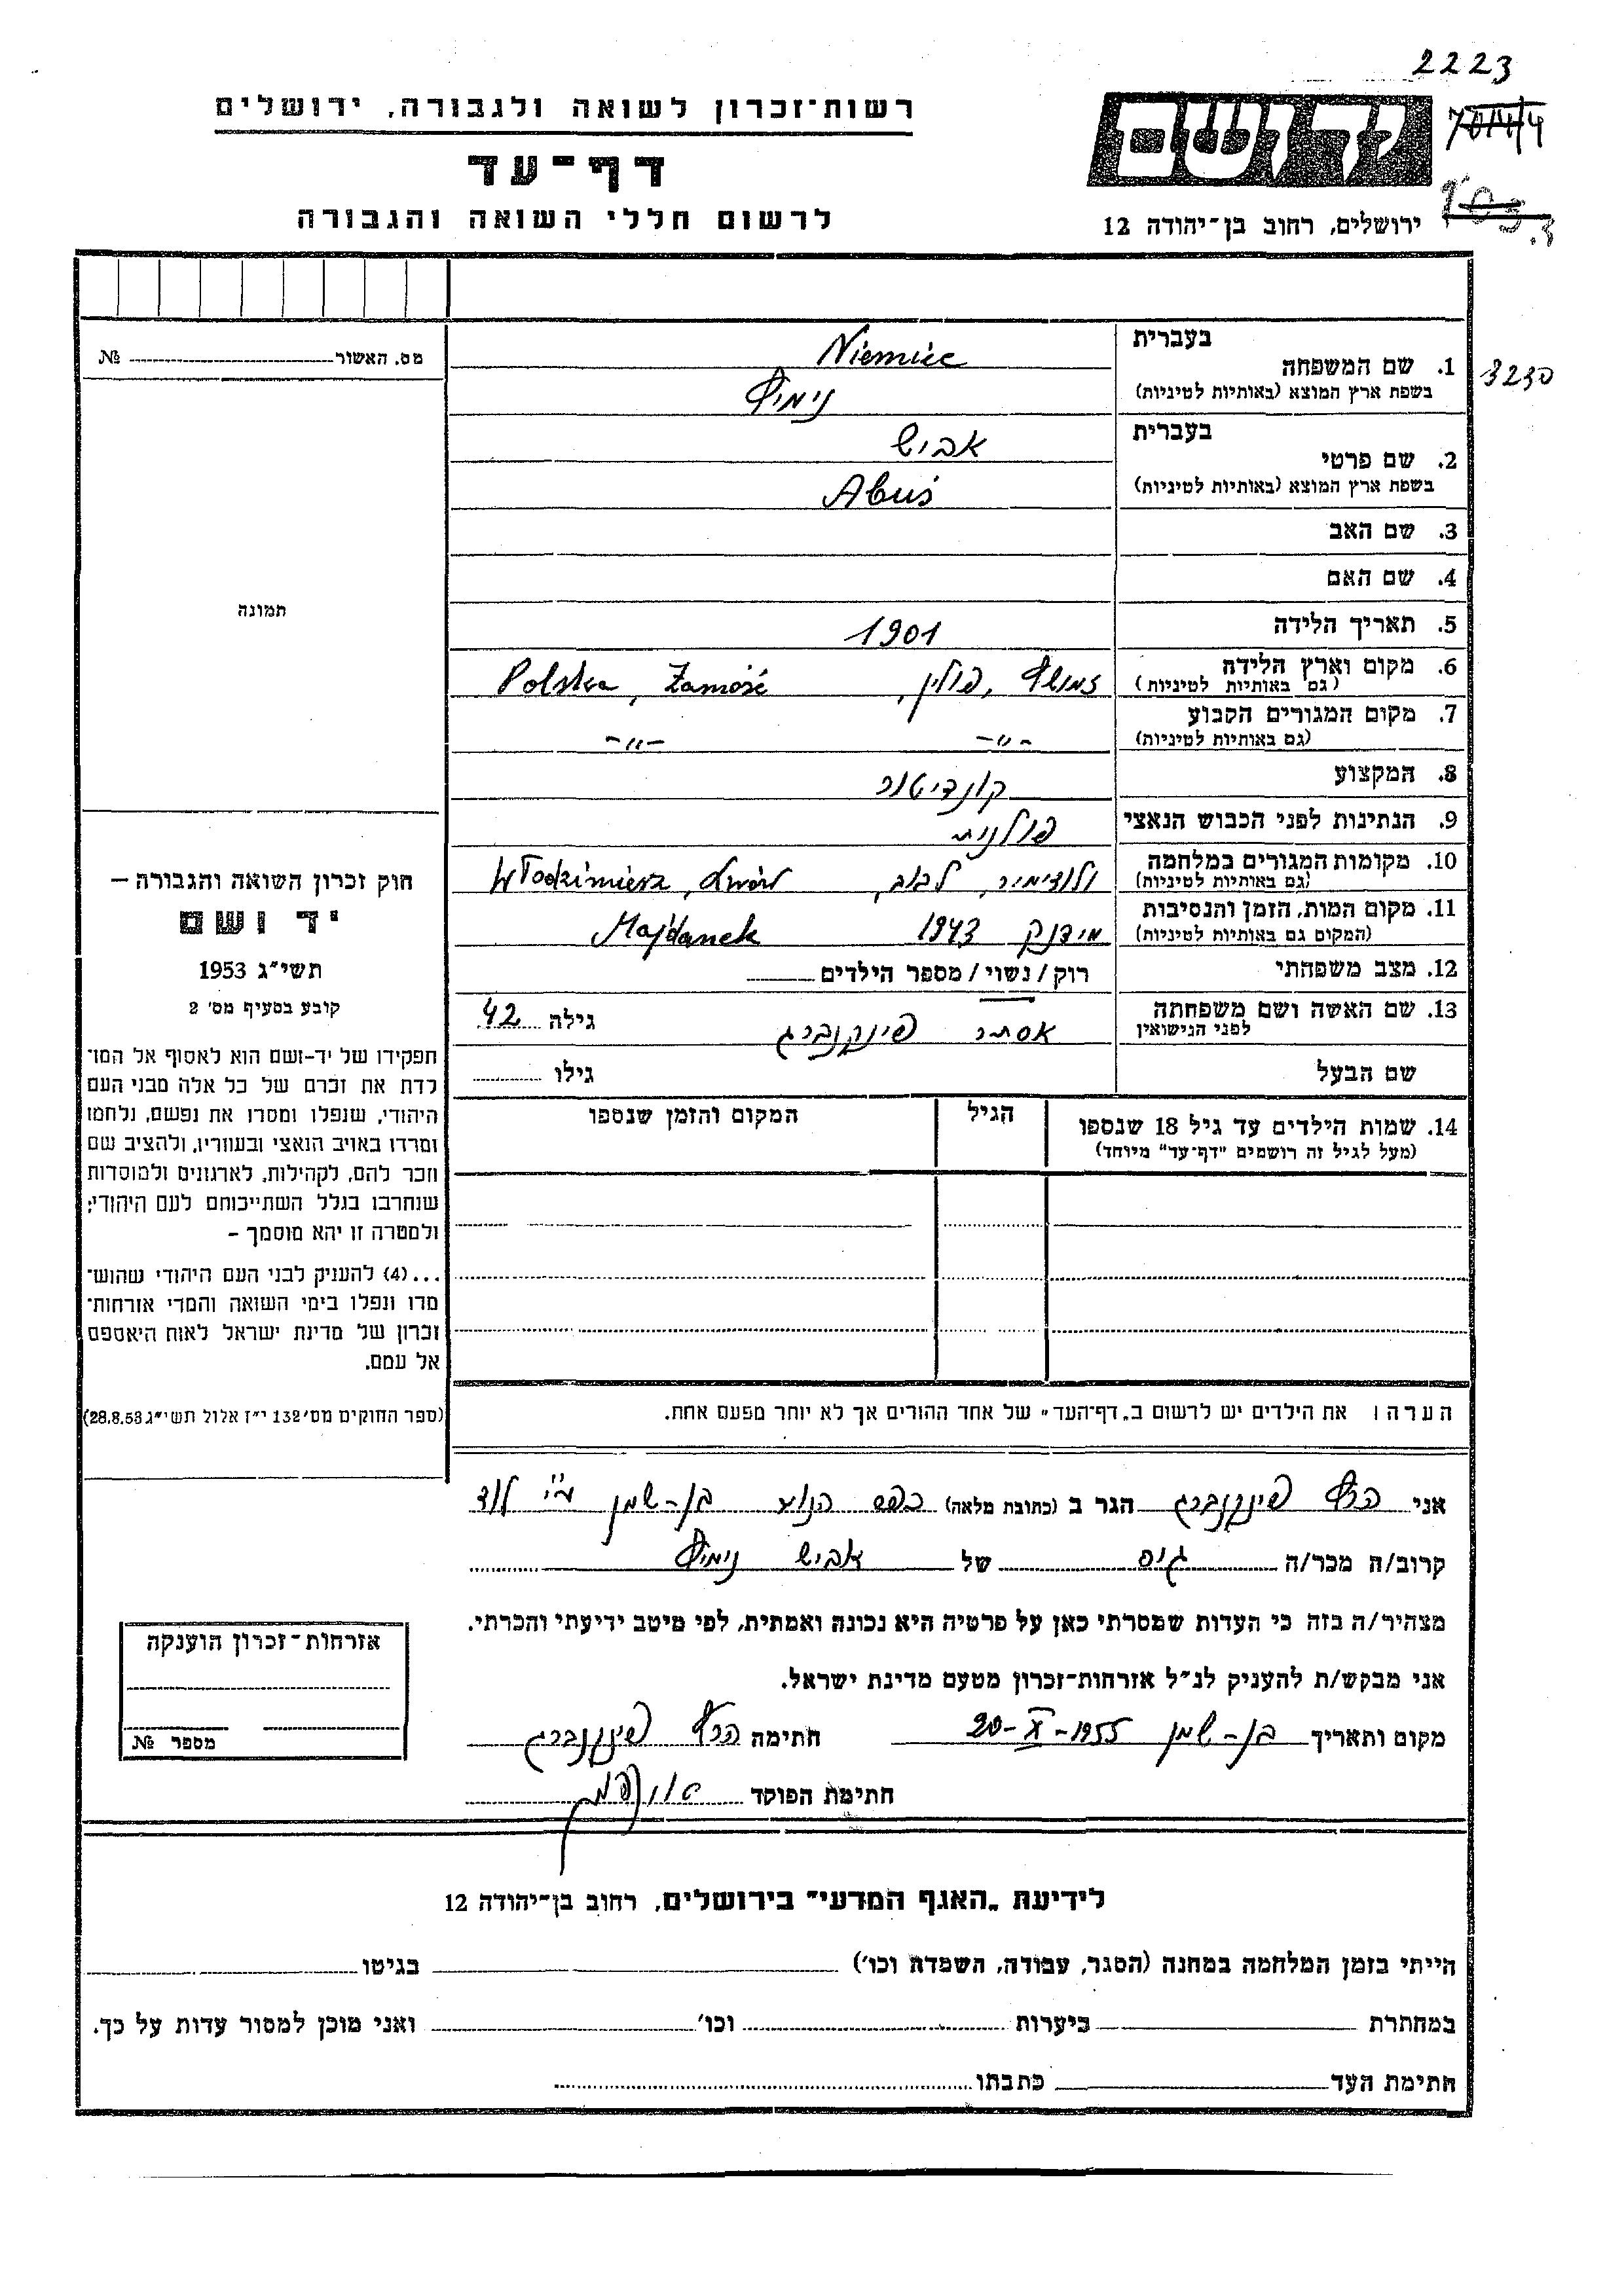 2223
רשות־זכרון לשואה ולגבורה, ירושלים
ידושם
דף־עד
לרשום חללי השואה והגבורה
ירושלים, רחוב בן־יהודה 12
מס. האשור № 
בעברית
1. שם המשפחה Niemiec
בשפת ארץ המוצא (באותיות לטיניות) נימיץ
3230
בעברית
2. שם פרטי אביש
בשפת ארץ המוצא (באותיות לטיניות) Abuś
3. שם האב
4. שם האם
תמונה
5. תאריך הלידה 1901
6. מקום וארץ הלידה זמושץ, פולין, Polska, Zamość
(גם באותיות לטיניות)
7. מקום המגורים הקבוע -"- -"-
(גם באותיות לטיניות)
8. המקצוע קונדיטור
9. הנתינות לפני הכבוש הנאצי פולנית
10. מקומות המגורים במלחמה ולודימיר, לבוב, Włodzimierz, Lwów
(גם באותיות לטיניות)
11. מקום המות, הזמן והנסיבות מידנק 1943 Majdanek
(המקום גם באותיות לטיניות)
12. מצב משפחתי רוק / נשוי / מספר הילדים
13. שם האשה ושם משפחתה אסתר פינקנברג גילה 42
לפני הנישואין
שם הבעל גילו
14. שמות הילדים עד גיל 18 שנספו הגיל המקום והזמן שנספו
(מעל לגיל זה רושמים "דף־עד" מיוחד)
חוק זכרון השואה והגבורה —
יד ושם
תשי"ג 1953
קובע בסעיף מס' 2
תפקידו של יד-ושם הוא לאסוף אל המו־
לדת את זכרם של כל אלה מבני העם
היהודי, שנפלו ומסרו את נפשם, נלחמו
ומרדו באויב הנאצי ובעוזריו, ולהציב שם
וזכר להם, לקהילות, לארגונים ולמוסדות
שנחרבו בגלל השתייכותם לעם היהודי;
ולמטרה זו יהא מוסמך –
...(4) להעניק לבני העם היהודי שהוש־
מדו ונפלו בימי השואה והמרי אזרחות־
זכרון של מדינת ישראל לאות היאספם
אל עמם.
(ספר החוקים מס' 132 י"ז אלול תשי"ג 28.8.53)
הערה: את הילדים יש לרשום ב"דף־העד" של אחד ההורים אך לא יותר מפעם אחת.
אני הרץ פינקנברג הגר ב (כתובת מלאה) כפר הנוער בן-שמן ע"י לוד
קרוב/ה מכר/ה גיס של אביש נימיץ
מצהיר/ה בזה כי העדות שמסרתי כאן על פרטיה היא נכונה ואמתית, לפי מיטב ידיעתי והכרתי.
אני מבקש/ת להעניק לנ"ל אזרחות־זכרון מטעם מדינת ישראל.
מקום ותאריך בן-שמן 20-X-1955 חתימה הרץ פינקנברג
חתימת הפוקד
אזרחות־זכרון הוענקה
מספר №
לידיעת "האגף המדעי" בירושלים, רחוב בן־יהודה 12
הייתי בזמן המלחמה במחנה (הסגר, עבודה, השמדה וכו') בגיטו
במחתרת ביערות וכו' ואני מוכן למסור עדות על כך.
חתימת העד כתבתו